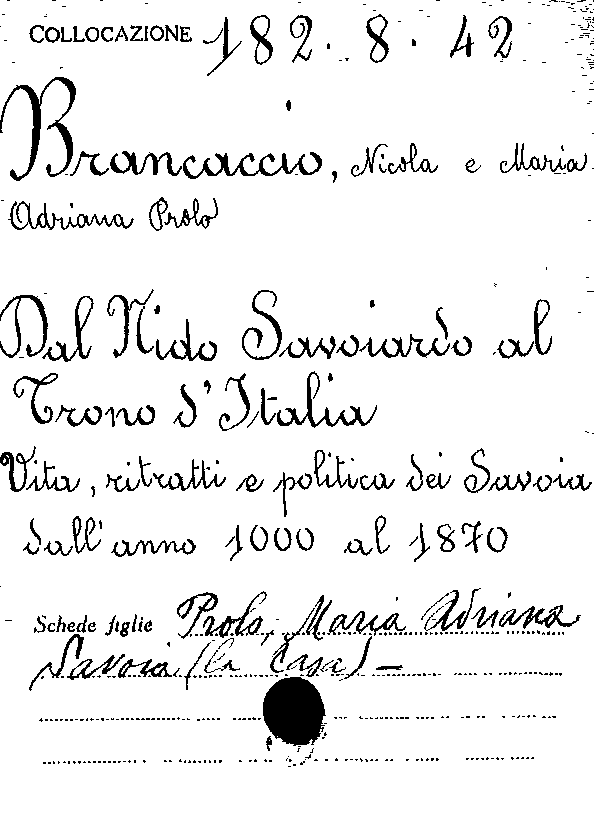 COLLOCAZIONE 182. 8. 42
Brancaccio, Nicola e Maria
Adriana Prolo
Dal Nido Savoiardo al
Trono d'Italia
Vita, ritratti e politica dei Savoia
dall'anno 1000 al 1870
Schede figlie Prolo, Maria Adriana
Savoia (la Casa) —